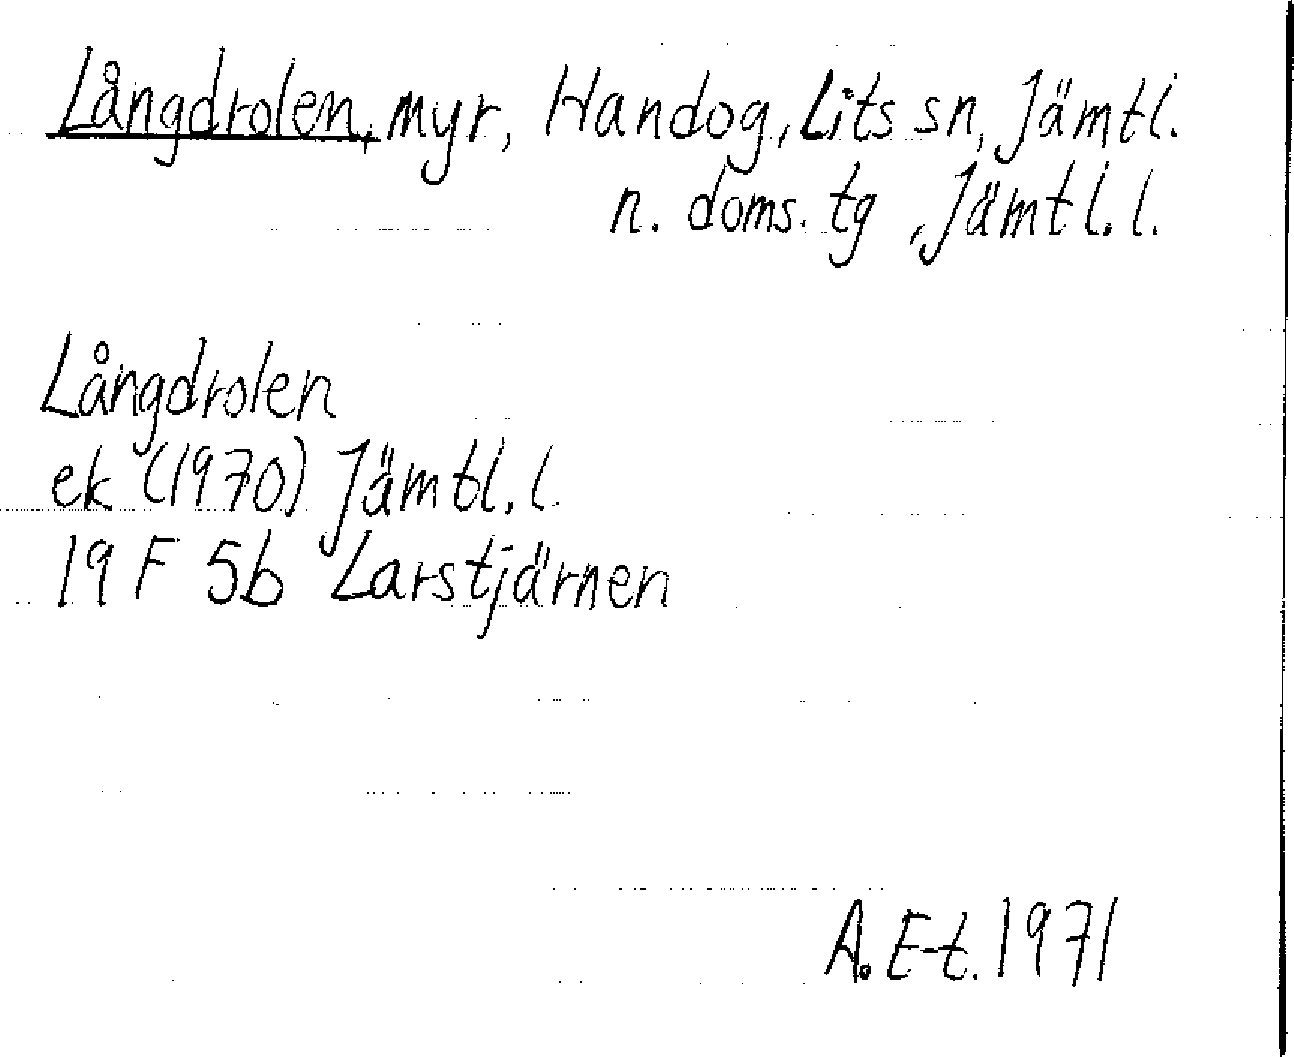 Långdrolen, myr, Handog, Lits sn, Jämtl.
n. doms. tg, Jämtl. l.
Långdrolen
ek (1970) Jämtl. l.
19 F 5b Larstjärnen
A. E-t. 1971